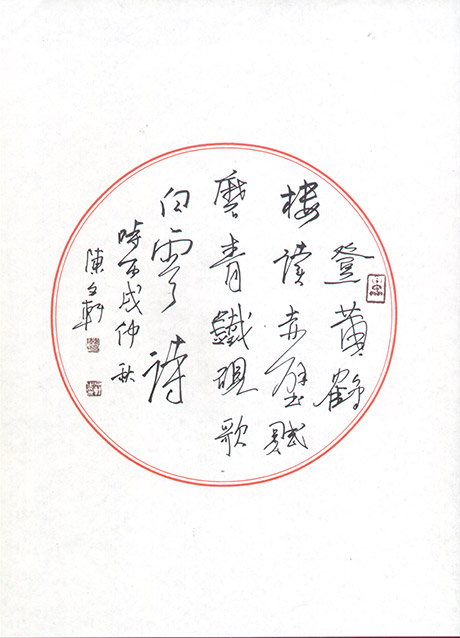 登黃鶴
樓讀赤壁賦
磨青鐵硯歌
白雪詩
時丙戌仲秋
陳文軒